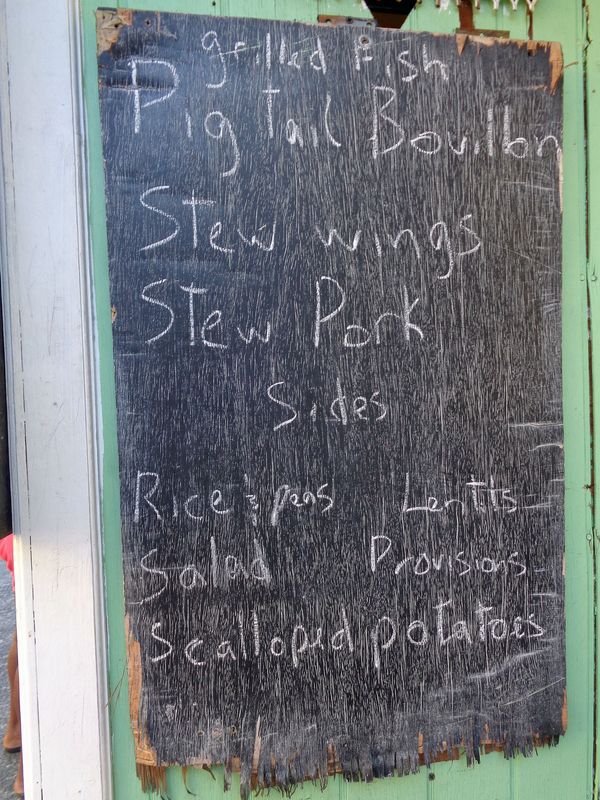 grilled Fish
Pig Tail Bouillon
Stew wings
Stew Pork
Sides
Rice & peas Lentils
Salad Provisions
Scalloped potatoes